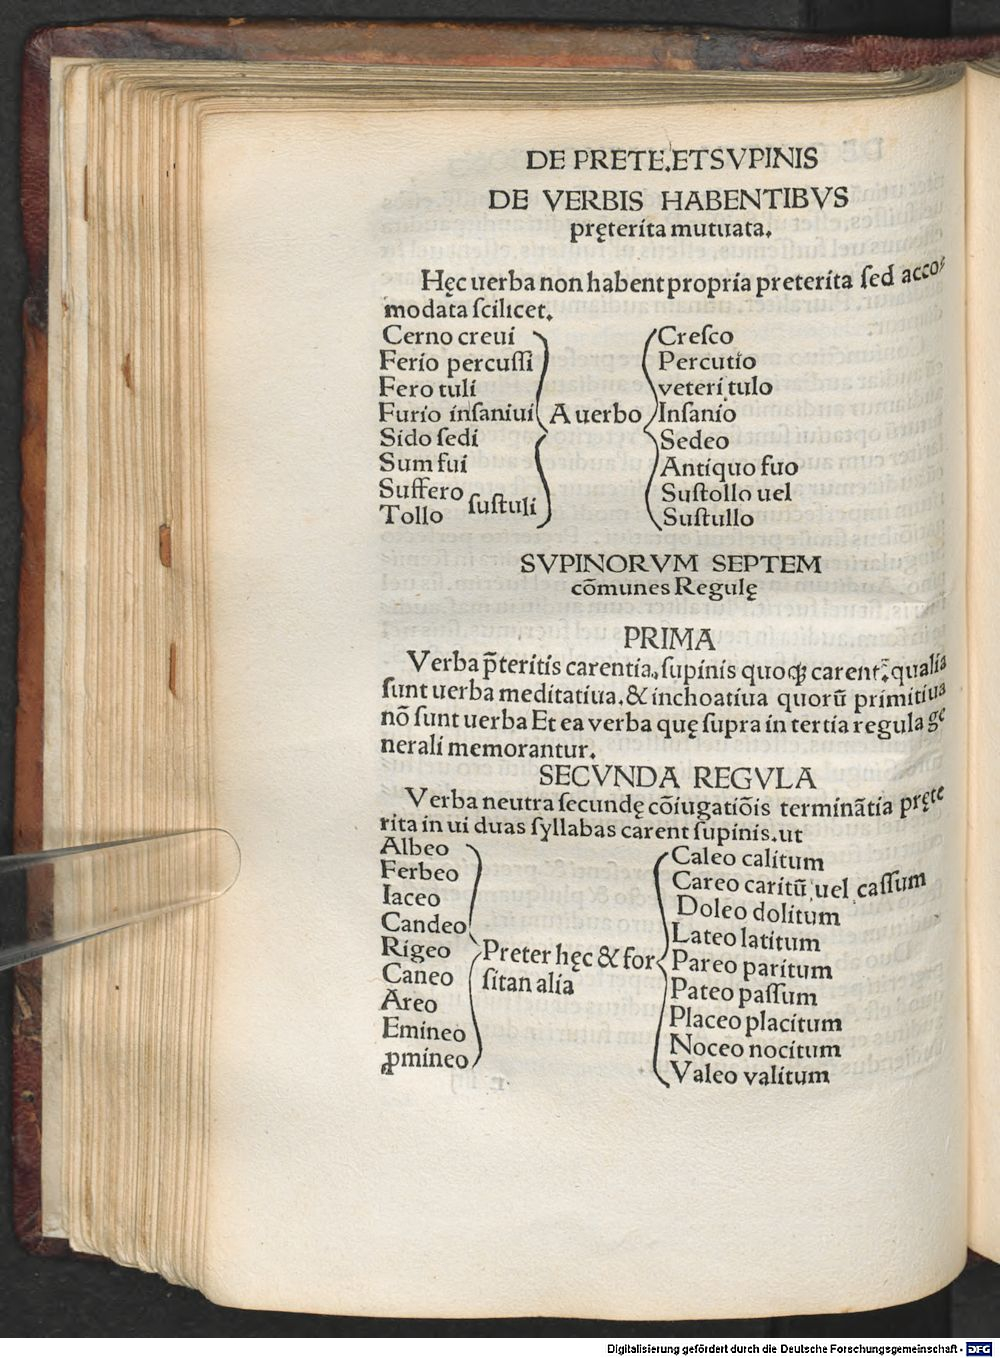 DE PRETE.ET SVPINIS
DE VERBIS HABENTIBVS
pręterita mutuata.
Hęc uerba non habent propria preterita ſed acco⸗
modata ſcilicet.
Cerno creui
Ferio percuſſi
Fero tuli
Furio inſaniui
Sido ſedi
Sum fui
Suffero
Tollo
ſuſtuli
A uerbo
Creſco
Percutio
veteri tulo
Inſanio
Sedeo
Antiquo fuo
Suſtollo uel
Suſtullo
SVPINORVM SEPTEM
cōmunes Regulę
PRIMA
Verba p̄teritis carentia, ſupinis quoqꝫ carent: qualia
ſunt uerba meditatiua. & inchoatiua quorū primitiua
nō ſunt uerba Et ea verba quę ſupra in tertia regula ge
nerali memorantur.
SECVNDA REGVLA
Verba neutra ſecundę cōiugatiōis terminātia pręte
rita in ui duas ſyllabas carent ſupinis. ut
Albeo
Ferbeo
Iaceo
Candeo
Rigeo
Caneo
Areo
Emineo
ꝓmineo
Preter hęc & for
ſitan alia
Caleo calitum
Careo caritū uel caſſum
Doleo dolitum
Lateo latitum
Pareo paritum
Pateo paſſum
Placeo placitum
Noceo nocitum
Valeo valitum
Digitalisierung gefördert durch die Deutsche Forschungsgemeinschaft - DFG